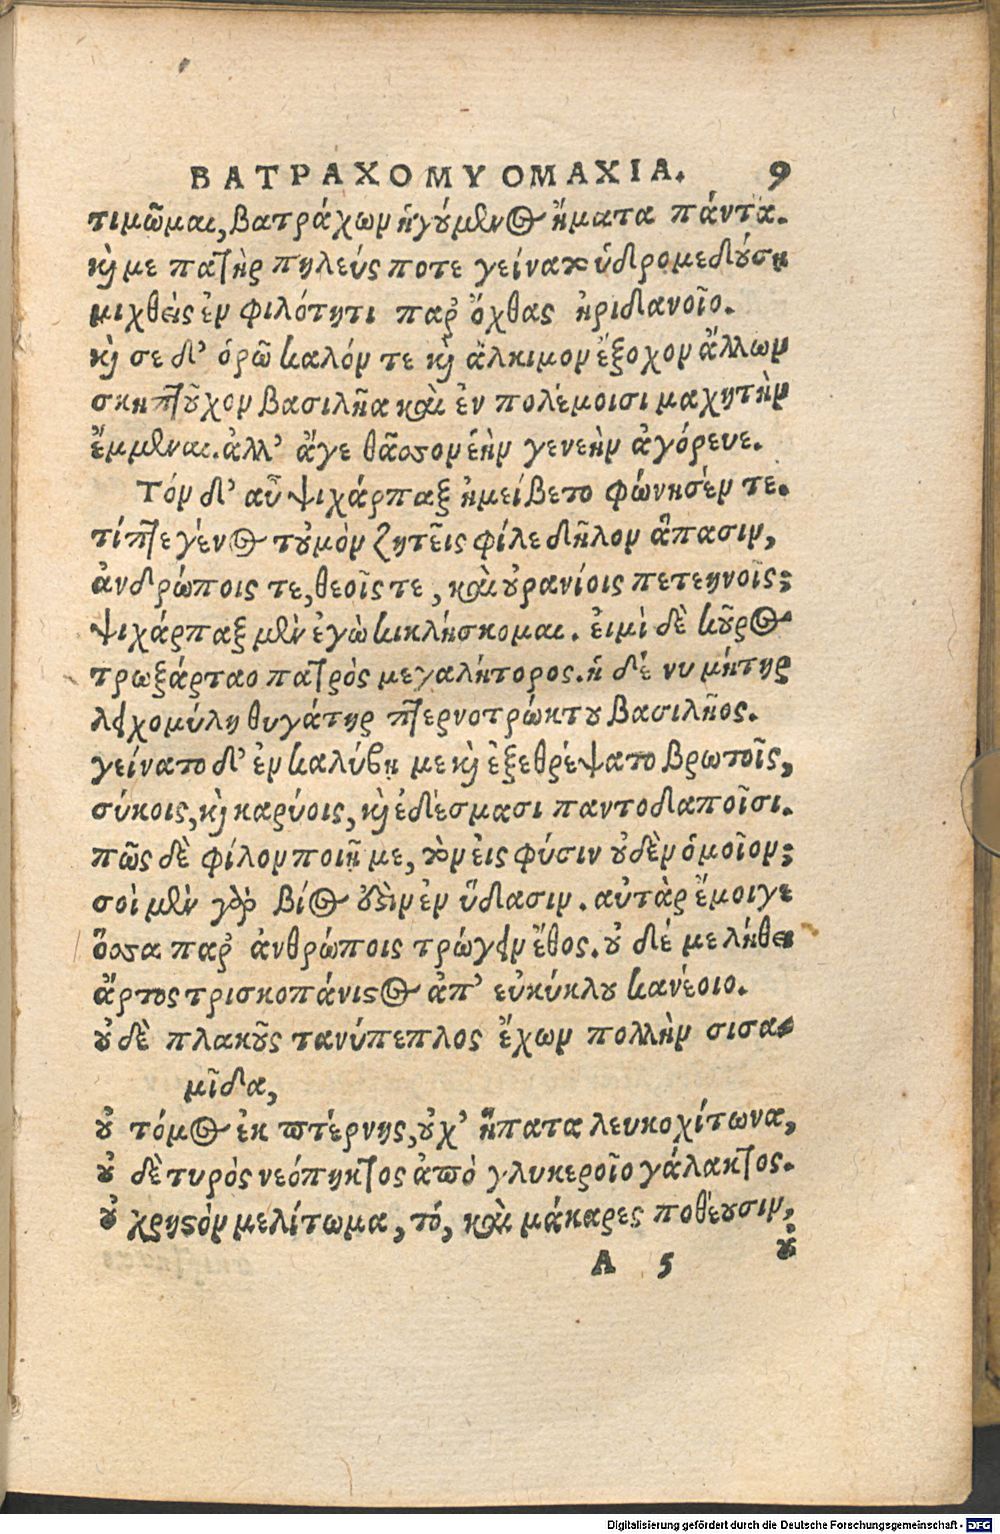 ΒΑΤΡΑΧΟΜΥΟΜΑΧΙΑ. 9
τιμῶμαι, βατράχων ἡγούμενος ἤματα πάντα.
καί με πατὴρ πηλεύς ποτε γείνατο ὑδρομεδούσῃ
μιχθεὶς ἐν φιλότητι παρ' ὄχθας ἠριδανοῖο.
καὶ σε δ' ὁρῶ καλόν τε καὶ ἄλκιμον ἔξοχον ἄλλων
σκηπτοῦχον βασιλῆα καὶ ἐν πολέμοισι μαχητὴν
ἔμμεναι. ἀλλ' ἄγε θᾶσσον ἑὴν γενεὴν ἀγόρευε.
Τόν δ' αὖ ψιχάρπαξ ἠμείβετο φώνησέν τε.
τίπτε γένος τοὐμὸν ζητεῖς φίλε δῆλον ἅπασιν,
ἀνδρώποις τε, θεοῖς τε, καὶ οὐρανίοις πετεηνοῖς;
ψιχάρπαξ μὲν ἐγὼ κικλήσκομαι. εἰμὶ δὲ κοῦρος
τρωξάρταο πατρὸς μεγαλήτορος. ἡ δέ νυ μήτηρ
λειχομύλη θυγάτηρ πτερνοτρώκτου βασιλῆος.
γείνατο δ' ἐν καλύβῃ με καὶ ἐξεθρέψατο βρωτοῖς,
σύκοις, καὶ καρύοις, καὶ ἐδέσμασι παντοδαποῖσι.
πῶς δὲ φίλον ποιῇ με, τὸν εἰς φύσιν οὐδὲν ὁμοῖον;
σοὶ μὲν γὰρ βίος ἐστὶν ἐν ὕδασιν. αὐτὰρ ἔμοιγε
ὅσσα παρ' ἀνθρώποις τρώγειν ἔθος. οὐ δέ με λήθει
ἄρτος τρισκοπάνιστος ἀπ' εὐκύκλου κανέοιο.
οὐ δὲ πλακοῦς τανύπεπλος ἔχων πολλὴν σισα-
μῖδα,
οὐ τόμος ἐκ πτέρνης, οὐχ' ἥπατα λευκοχίτωνα,
οὐ δὲ τυρὸς νεόπηκτος ἀπὸ γλυκεροῖο γάλακτος.
οὐ χρηστὸν μελίτωμα, τό, καὶ μάκαρες ποθέουσιν,
A 5 οὐ
Digitalisierung gefördert durch die Deutsche Forschungsgemeinschaft - DFG